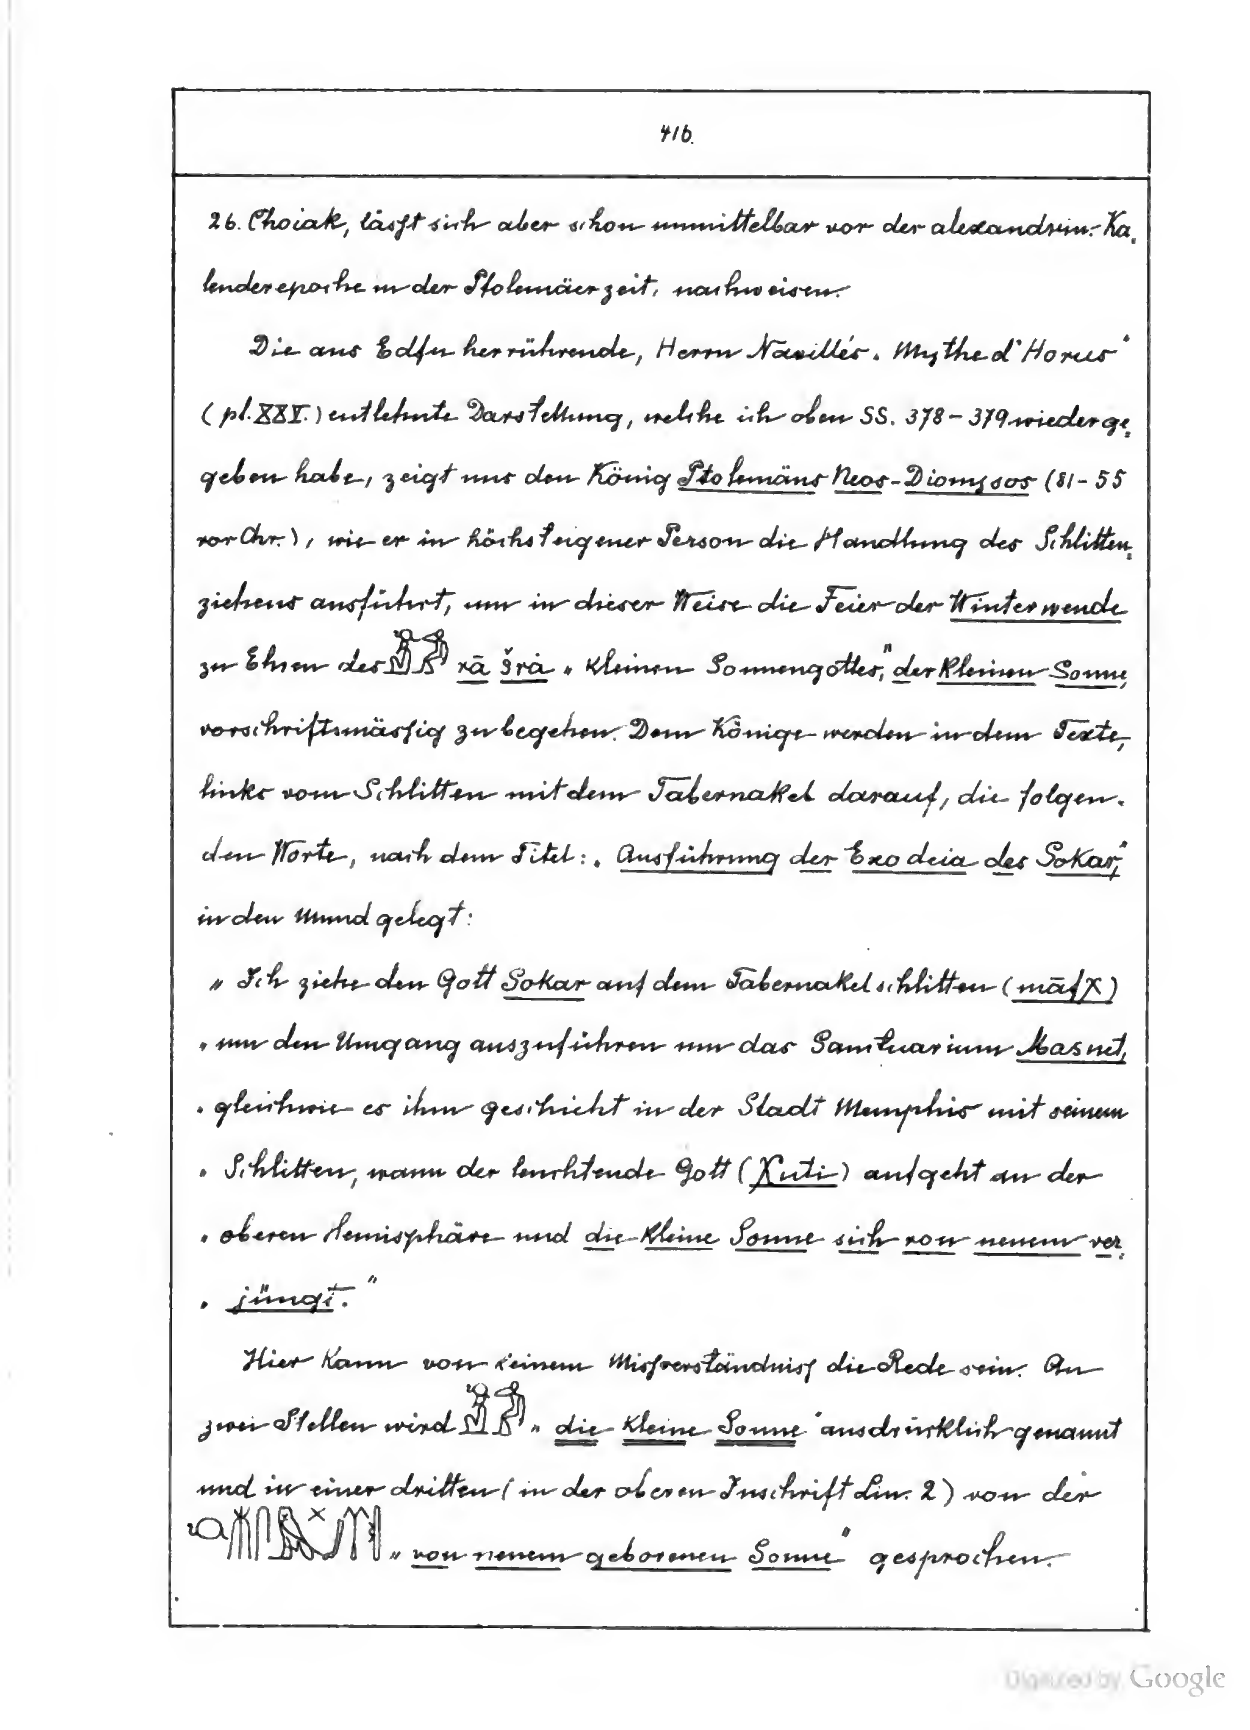 416.
26. Choiak, lässt sich aber schon unmittelbar vor der alexandrin. Ka„
lenderepoche in der Ptolemäerzeit, nachweisen.
Die aus Edfu herrührende, Herrn Naville's „Mythe d'Horus"
(pl. XXV.) entlehnte Darstellung, welche ich oben SS. 378-379 wiederge„
geben habe, zeigt uns den König Ptolemäus Neos-Dionysos (81-55
vor Chr.), wie er in höchsteigener Person die Handlung des Schlitten„
ziehens ausführt, um in dieser Weise die Feier der Winterwende
zu Ehren des rā šrȧ „kleinen Sonnengottes," der kleinen Sonne,
vorschriftsmässig zu begehen. Dem Könige werden in dem Texte,
links vom Schlitten mit dem Tabernakel darauf, die folgen„
den Worte, nach dem Titel: „Ausführung der Exodeia des Sokar,"
in den Mund gelegt:
„Ich ziehe den Gott Sokar auf dem Tabernakelschlitten (māfχ)
„um den Umgang auszuführen um das Sanctuarium Masnet,
„gleichwie es ihm geschieht in der Stadt Memphis mit seinem
„Schlitten, wann der leuchtende Gott (χuti) aufgeht an der
„oberen Hemisphäre und die kleine Sonne sich von neuem ver„
„jüngt."
Hier kann von keinem Missverständniss die Rede sein. An
zwei Stellen wird „die kleine Sonne" ausdrücklich genannt
und in einer dritten (in der oberen Inschrift Lin. 2) von der
„von neuem geborenen Sonne" gesprochen.
Digitized by Google